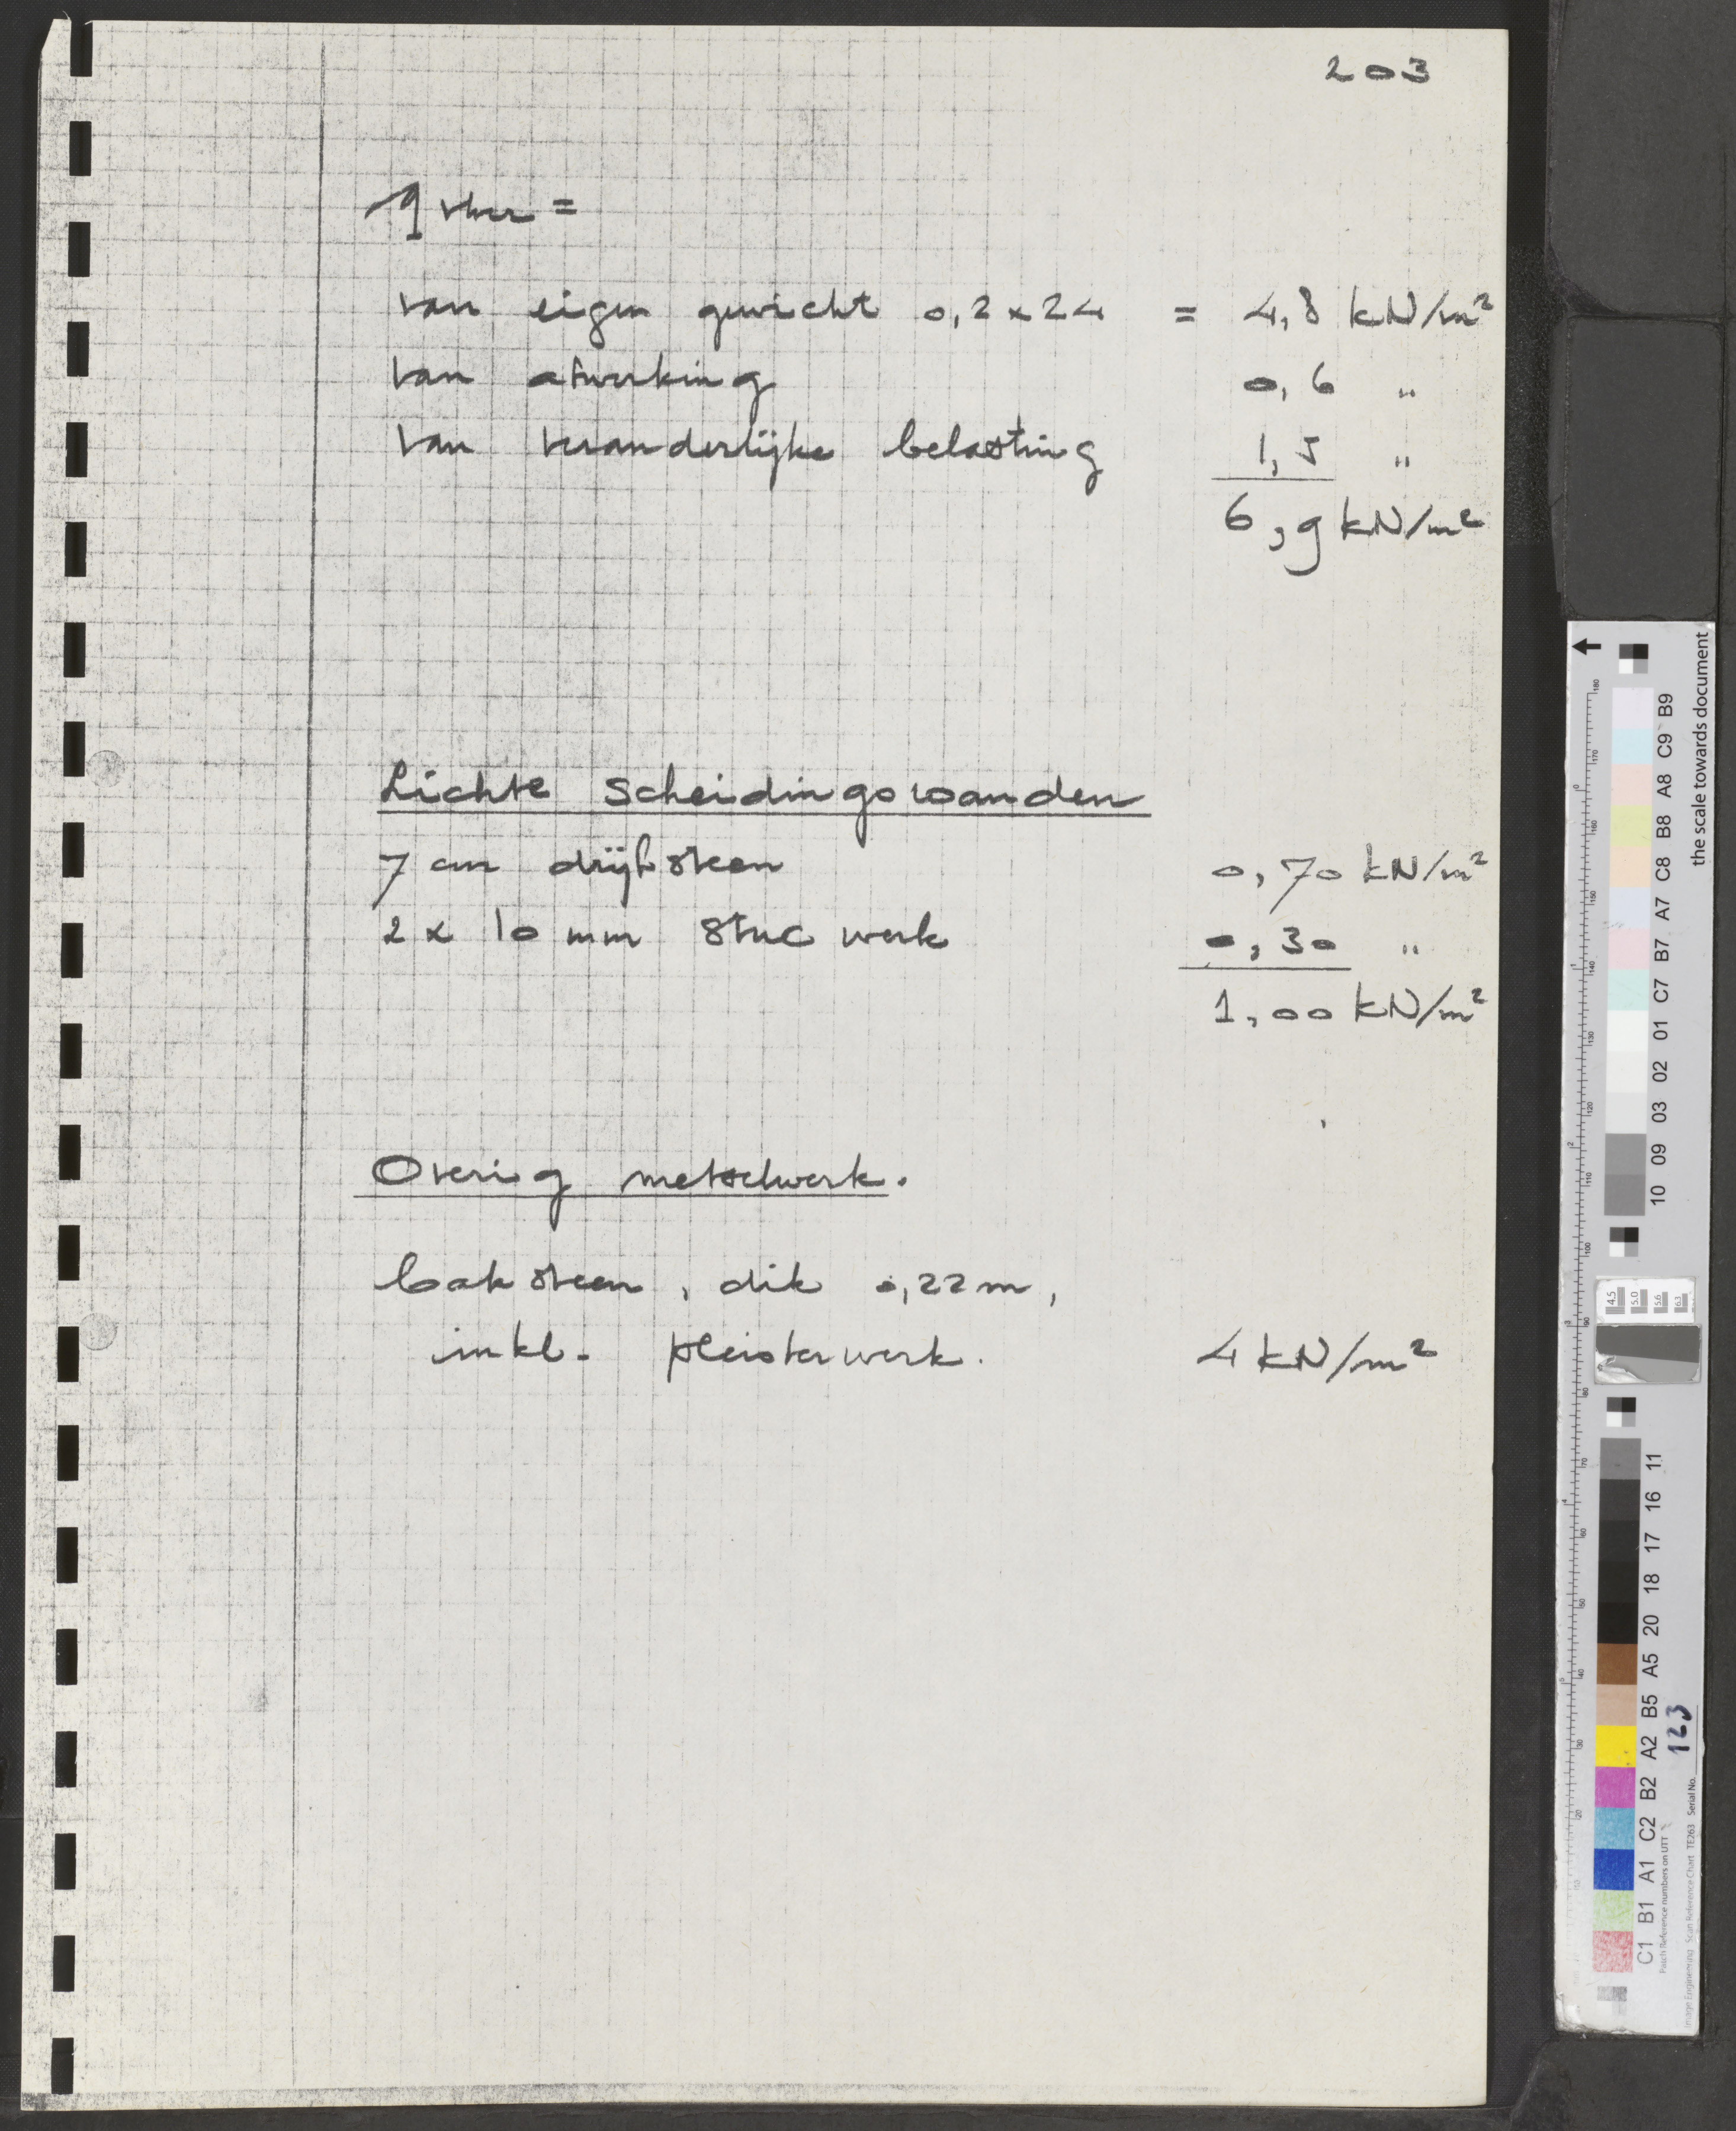 203
q vloer =
van eigen gewicht 0,2 x 24 = 4,8 kN/m²
van afwerking 0,6 "
van veranderlijke belasting 1,5 "
6,9 kN/m²
Lichte scheidingswanden
7 cm drijfsteen 0,70 kN/m²
2 x 10 mm stucwerk 0,30 "
1,00 kN/m²
Overig metselwerk.
baksteen, dik 0,22 m,
inkl. pleisterwerk. 4 kN/m²
the scale towards document
B9
C9
A8
B8
C8
A7
B7
C7
01
02
03
09
10
11
16
17
18
20
A5
B5
A2
B2
C2
A1
B1
C1
Patch Reference numbers on UTT
Image Engineering Scan Reference Chart TE263 Serial No. 123